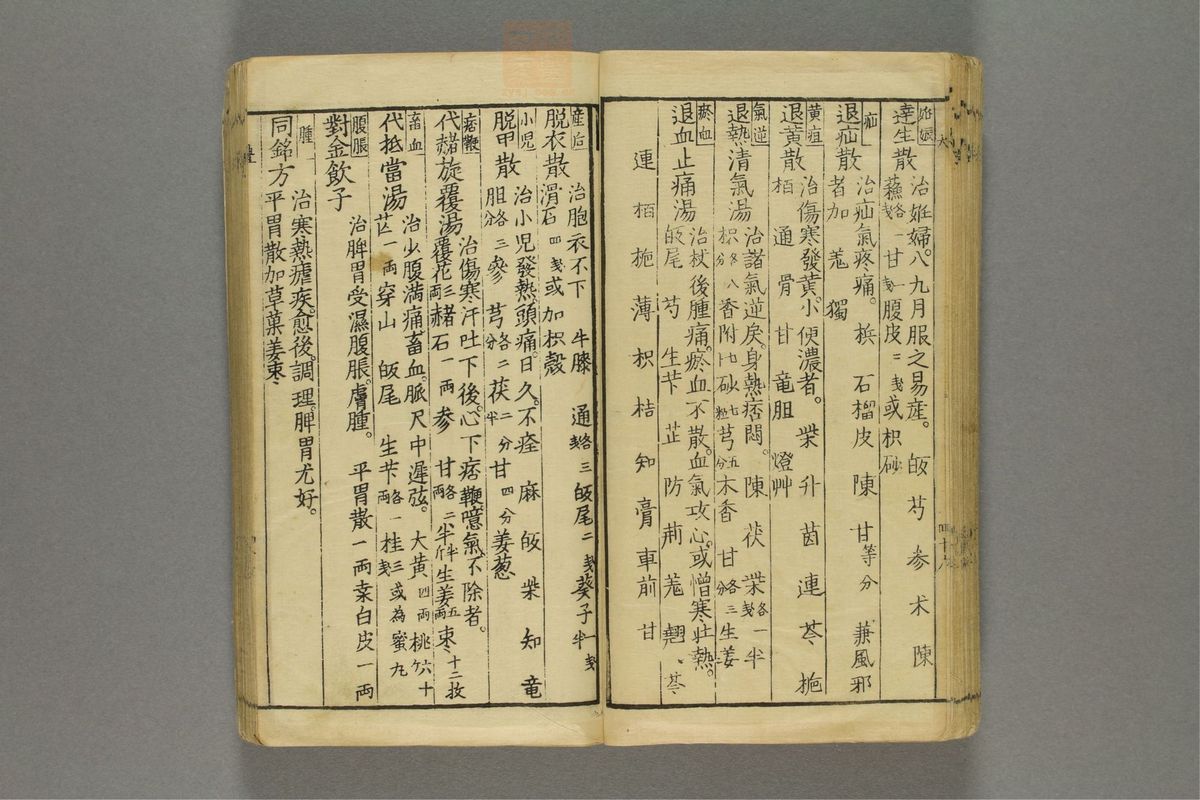 妊娠
達生散
治妊婦。八九月服之易産。皈芍参术陳
蘓各一戔甘一戔腹皮二戔或枳砂
疝
退疝散
治疝氣疼痛。梹石榴皮陳甘等分兼風邪
者加羗獨
黄疸
退黄散
治傷寒發黄。小便濃者。柴升茵連芩梔
栢通骨甘竜胆燈艸
氣逆
退熱清氣湯
治諸氣逆戾。身熱痞悶。陳茯柴各一戔半
枳各八分香附七分砂七粒芎五分木香甘各三分生姜
瘀血
退血止痛湯
治杖後腫痛。瘀血不散。血氣攻心。或憎寒壯熱。
皈尾芍生芐芷防荊羗翹芩
連栢梔薄枳桔知膏車前甘
産后
脱衣散
治胞衣不下牛膝通各三戔皈尾二戔葵子一戔半
滑石四戔或加枳殼
小児
脱甲散
治小児發熱。頭痛。日久。不痊麻皈柴知竜
胆各三分參芎各二分茯二分半甘四分姜葱
痞鞭
代赭旋覆湯
治傷寒汗吐下後。心下痞鞭。噫氣不除者。
覆花三両赭石一両参甘各二両半半斤生姜五両枣十二枚
畜血
代抵當湯
治少腹満痛畜血。脈尺中遲弦。大黄四両桃六十个
芒一両穿山皈尾生芐各一両桂三戔或為蜜丸
腹脹
對金飲子
治脾胃受濕腹脹。膚腫。平胃散一両桒白皮一両
腫
治寒熱瘧疾。愈後。調理。脾胃尤好。
同銘方平胃散加草菓姜枣